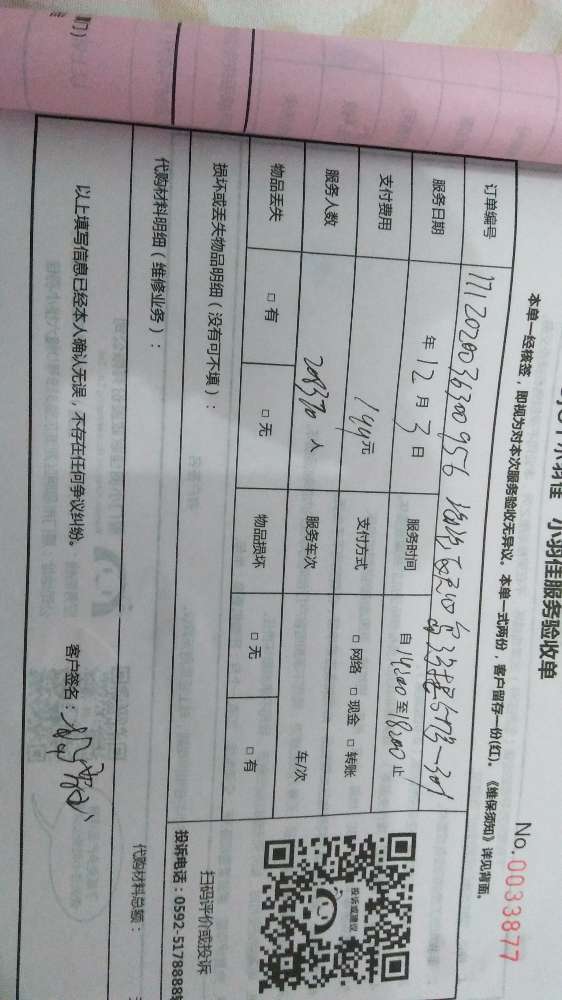 小羽佳服务验收单
No.0033877
本单一经核签，即视为对本次服务验收无异议。本单一式两份，客户留存一份(红)。《维保须知》详见背面。
订单编号
服务日期 年 12 月 3 日 服务时间 自 14:00 至 18:00 止
支付费用 144 元 支付方式 □ 网络 □ 现金 □ 转账
服务人数 人 服务车次 车/次
物品丢失 □ 有 □ 无 物品损坏 □ 无 □ 有
损坏或丢失物品明细（没有可不填）：
投诉或建议
扫码评价或投诉
投诉电话：0592-5178888转
代购材料明细（维修业务）：
代购材料总额：
以上填写信息已经本人确认无误，不存在任何争议纠纷。
客户签名：